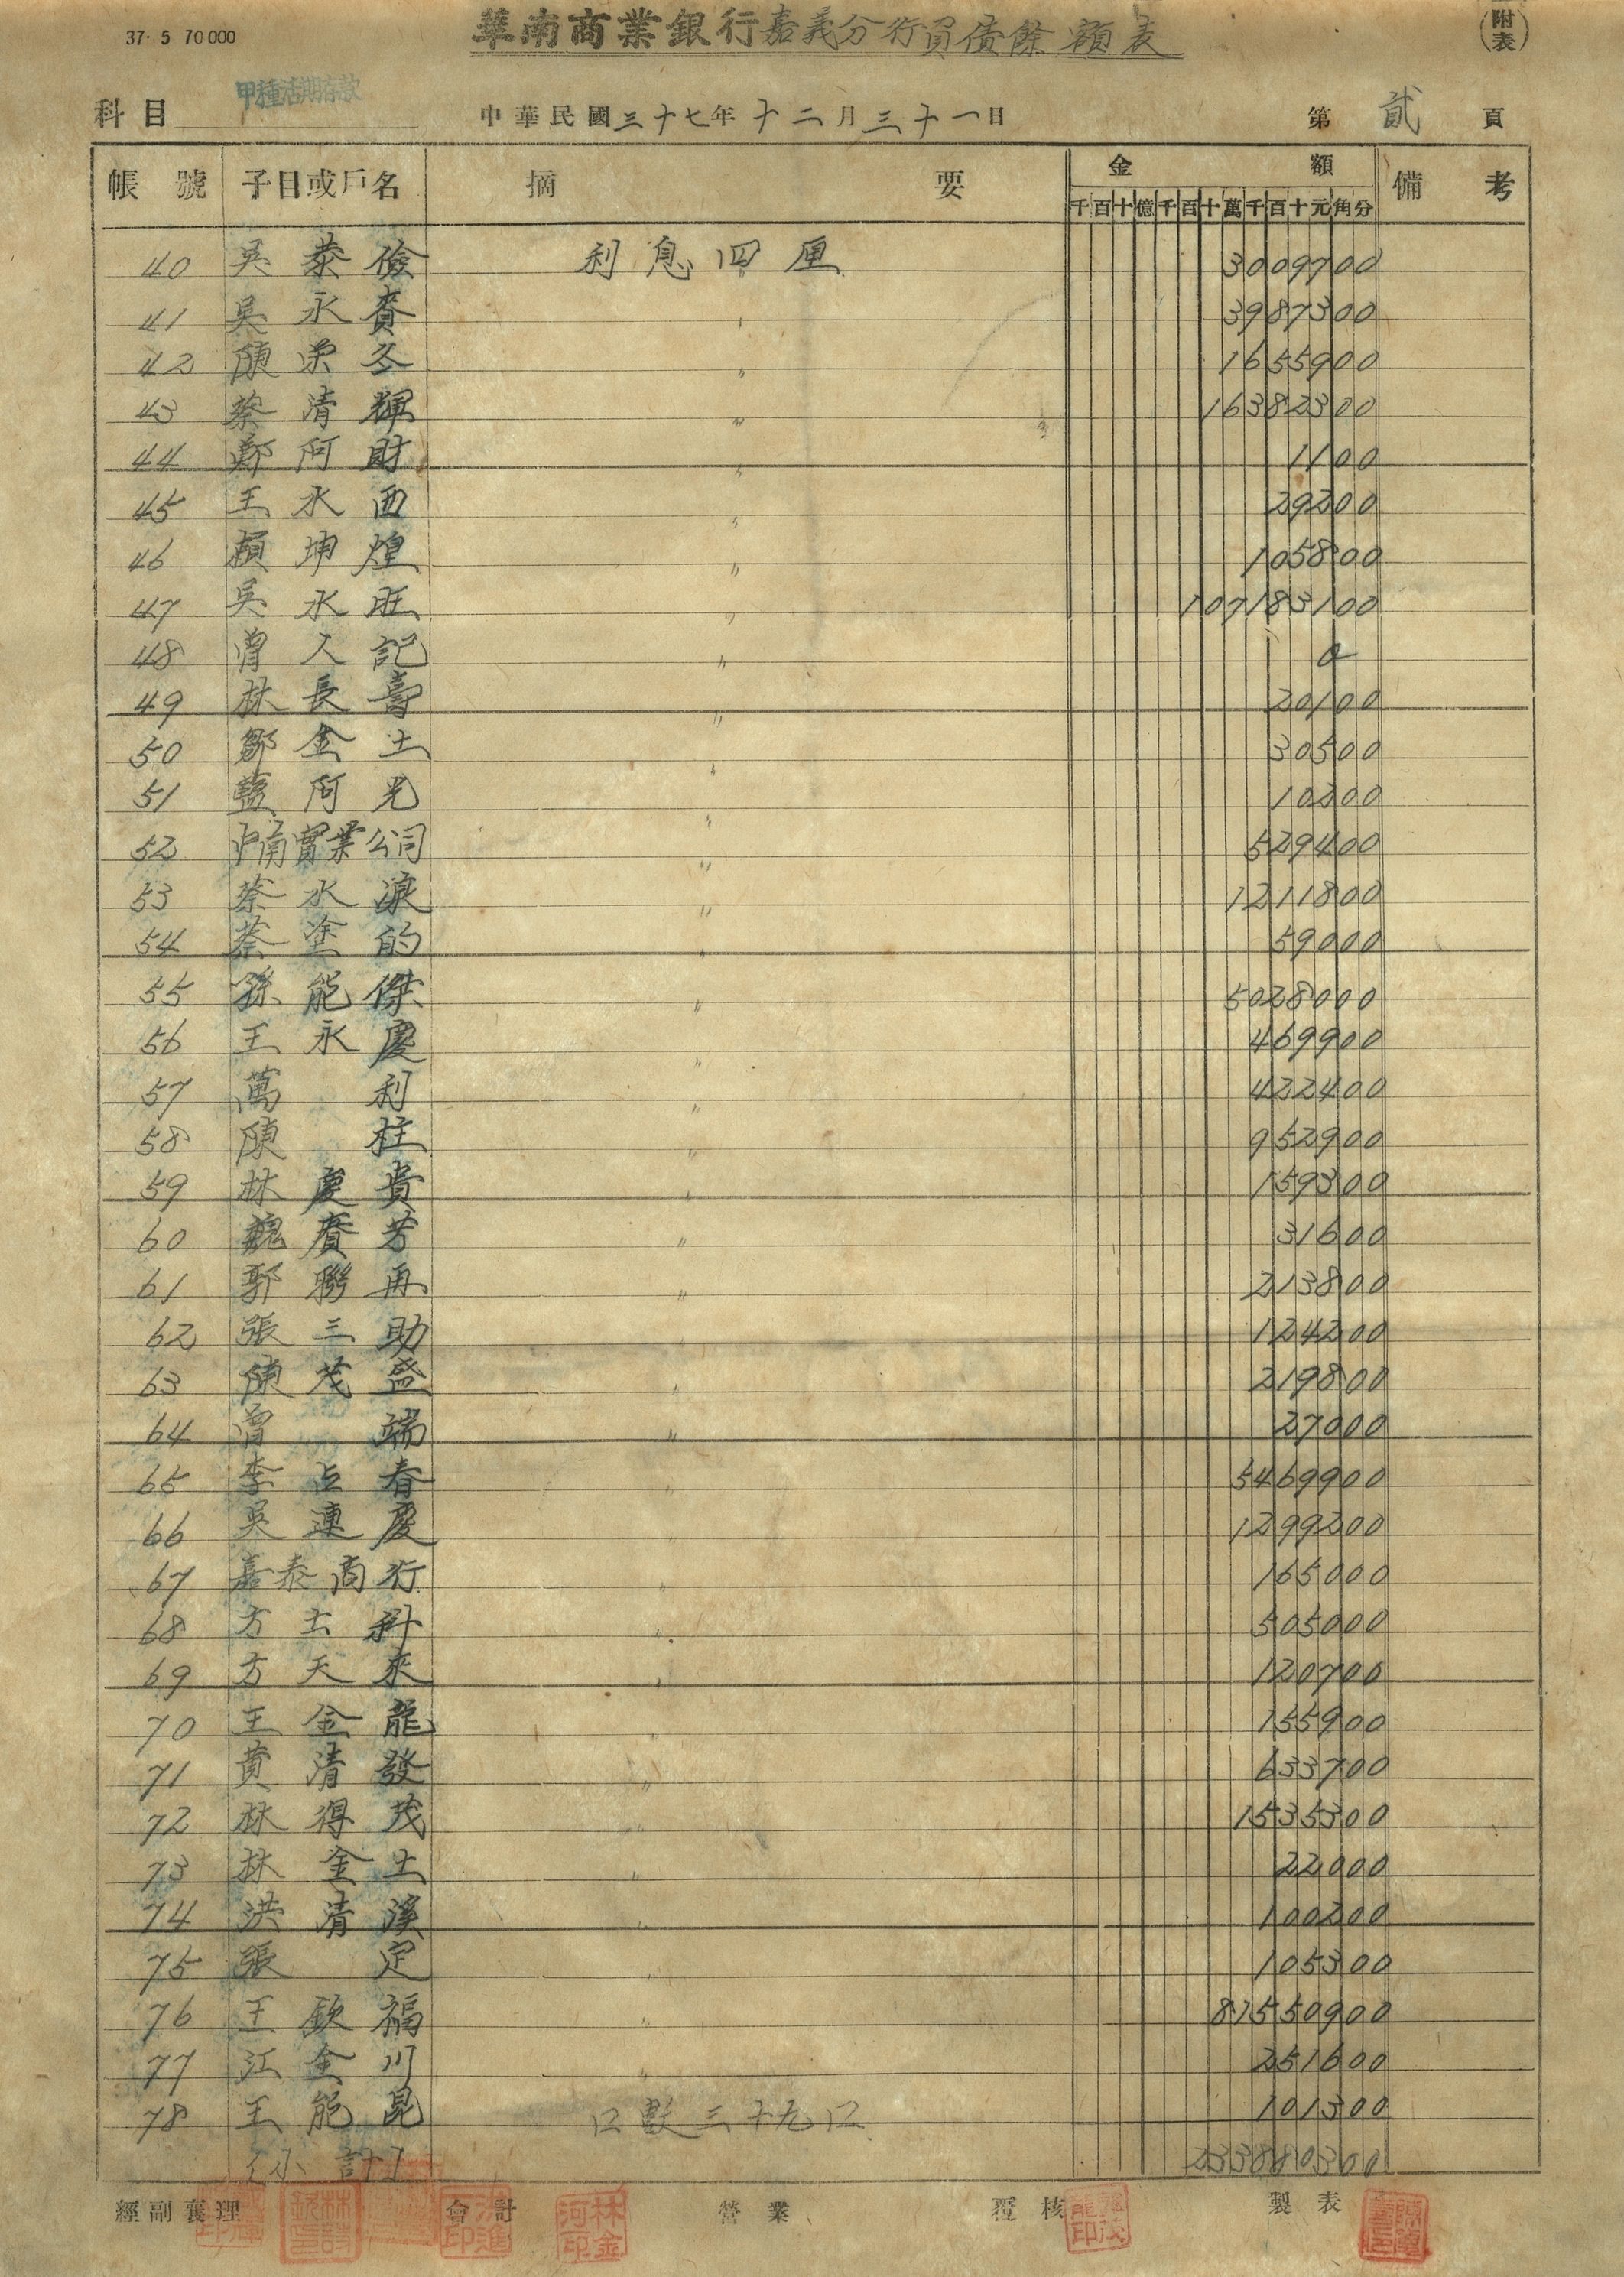 37· 5 70000
華南商業銀行嘉義分行員債餘額表
(附表)
科目 甲種活期存款
中華民國三十七年十二月三十一日
第 貳 頁
帳號 子目或戶名 摘要 金額 備考
千百十億千百十萬千百十元角分
40 吳泰儉 利息四厘 3009700
41 吳永賚 〃 3987300
42 陳栄冬 〃 1655900
43 蔡清輝 〃 16382300
44 鄭阿財 〃 1100
45 王水西 〃 29200
46 賴坤煌 〃 105800
47 吳水旺 〃 107183100
48 曾人記 〃 0
49 林長壽 〃 20100
50 鄒金土 〃 30500
51 阿光 〃 10200
52 南實業公司 〃 529400
53 蔡水浪 〃 1211800
54 蔡塗的 〃 59000
55 孫能傑 〃 5028000
56 王永慶 〃 469900
57 萬利 〃 422400
58 陳柱 〃 952900
59 林慶貴 〃 159300
60 魏賡芳 〃 31600
61 郭聯再 〃 213800
62 張三助 124200
63 陳茂盛 〃 219800
64 曾端 〃 27000
65 李占春 〃 5469900
66 吳連慶 〃 1299200
67 嘉泰商行 〃 165000
68 方士科 〃 505000
69 方天來 〃 120700
70 王金龍 〃 155900
71 黄清發 〃 633700
72 林得茂 〃 1535300
73 林金土 〃 22000
74 洪清溪 〃 100200
75 張定 〃 105300
76 王欽福 〃 81550900
77 江金川 〃 251600
78 王能昆 口數三十九口 101300
(小計) 233880300
經副襄理 會計 營業 覆核 製表
林金河印